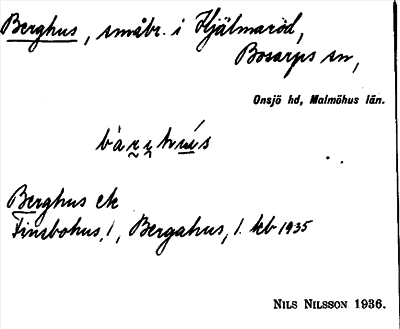 Berghus, småbr. i Hjälmaröd,
Bosarps sn,
Onsjö hd, Malmöhus län.
Berghus ek
Finsbohus, 1, Bergahus, 1. kb 1935
NILS NILSSON 1936.